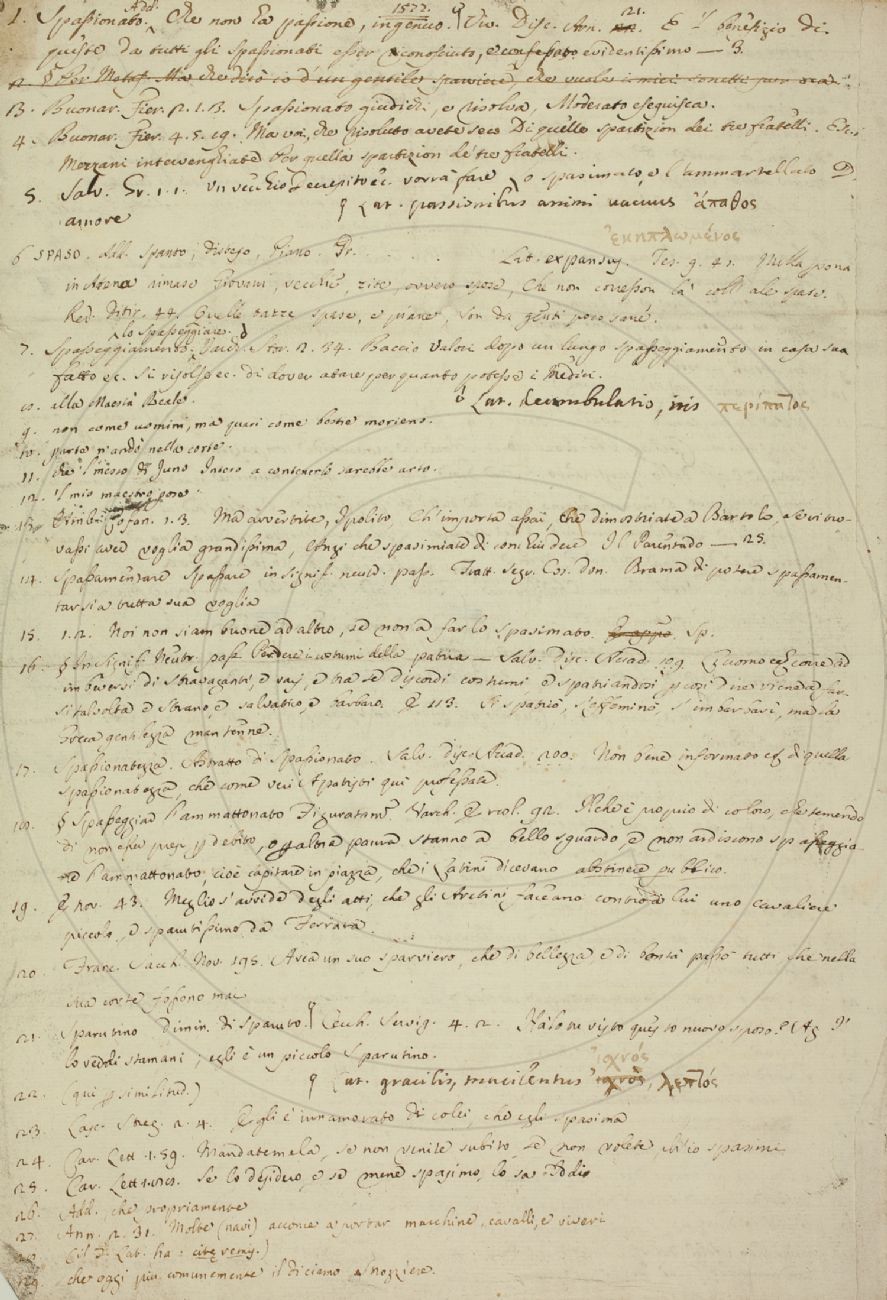 1. Spassionato. Add. Che non ha passione, ingenuo. § Viv. Disc. Arn. 21. E 'l benefizio di
queste da tutti gli spassionati esser conosciuto, e confessato evidentissimo — 3.
2. § Per Metaf. Ma che dirò io d'un gentile che vuole i miei sonetti
13. Buonar. Fier. 2. 1. 13. Spassionato giudichi, e risolva, Moderato eseguisca.
4. Buonar. Fier. 4. 5. 19. Ma voi, che risoluto avete seco Di quelle spartizion dei tre fratelli.
Mezzani intervengliate Per quella spartizion de' tre fratelli.
5. Salv. Gr. 1. 1. Un vecchio Decrepito ec. vorrà fare Lo spasimato, e l'ammartellato D
amore § Lat. passionibus animi vacuus ἀπαθος
ἐκηπλωμένος
6 SPASO. Add. Spanto, disteso, piano. Gr. . . . . Lat. expansus. Tes. 9. 41. Nulla persona
in Atena rimase Giovani, vecchie, zite, ovvero spose, Che non corresson là coll' ale spase.
Red. Ditir. 44. Quelle tazze spase, e piane, Son da genti poco sane.
7. Spasseggiamento. Lo spasseggiare. § Varch. Stor. 2. 34. Baccio Valori dopo un lungo spasseggiamento in casa sua
fatto ec. si risolse ec. di dover atare per quanto potesse i Medici.
8. alla Maestà Reale. § Lat. deambulatio, nis περίπατος
9. non come uomini, ma quasi come bestie morieno.
10. parte n'andò nella corte.
11. che 'l messo di Juno Inteso a contenerli sarebbe arto.
12. Il mio maestro pose
13. Ambr. Cofan. 1. 3. Ma avvertite, Ipolito, Ch'importa assai, che dimostriate a Bartolo, se vi tro-
vassi aver voglia grandissima, Anzi che spasimiate di conchiudere Il Parentado — 25.
14. Spassamentare Spassare in signif. neutr. pass. Tratt. segr. Cos. don. Brama di potere spassamen-
tarsi a tutta sua voglia
15. 1. 2. Noi non siam buone ad altro, se non a far lo spasimato. Sp.
16. § In signif. Neutr. pass. Perdere i costumi della patria — Salv. disc. Accad. L'uomo ec. corre ad
imbeversi di stravaganti, e varj, e tra se discordi costumi e spatriandosi, p così dire viene a far-
si talvolta e strano, e salvatico, e barbaro. E 113. Si spatriò, s'effeminò, s'imbarbarì, ma la
Greca gentilezza mantenne.
17. Spassionatezza. Astratto di Spassionato. Salv. disc. Accad. 200. Non bene informato ec. di quella
spassionatezza, che come veri Apatisti qui professate.
18. § Spasseggiar l'ammattonato Figuratam. Varch. Ercol. 92. Il che è proprio di coloro, che temendo
di non esser presi p debito, o p altra paura stanno a bello sguardo, e non ardiscono spasseggia-
re l'ammattonato, cioè capitare in piazza, che i Latini dicevano abstinere pubblico.
19. E nov. 43. Meglio s'avvide degli atti, che gli Aretini faceano contro a lui uno cavaliere
piccolo, e sparutissimo da Ferrara.
20. Franc. Sacch. Nov. 195. Avea un suo sparviero, che di bellezza e di bontà passò tutti che nella
sua corte fossono mai
21. Sparutino Dimin. di Sparuto. § Cecch. Servig. 4. 2. Halo tu visto questo nuovo sposo? (Ag I'
lo veddi stamani; egli è un piccolo Sparutino.
ἰσχνός
22. (qui p similitud.) § Lat. gracilis, macilentus ἰσχνός, λεπτός
23. Lasc. Streg. 2. 4. Egli è innamorato di colei, che egli spasima
24. Car. Lett. 1. 59. Mandatemela, se non venite subito, se non volete ch'io spasimi
25. Car. Lett. Se lo desidero, e se mene spasimo, lo sa Iddio
26. Add. che propriamente
27. Ann. 2. 31. Molte (navi) acconce a portar macchine, cavalli, e viveri
28. (il T. Lat. ha: citæ remis.)
29. che oggi più comunemente il diciamo a Mozziere.